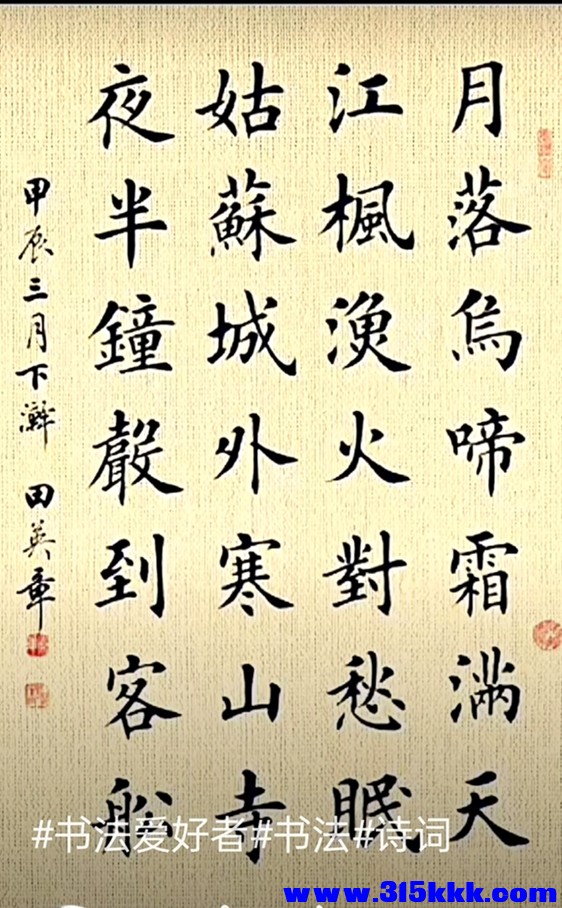 月落烏啼霜滿天
江楓漁火對愁眠
姑蘇城外寒山寺
夜半鐘聲到客船
甲辰三月下澣 田英章
#书法爱好者#书法#诗词
www.315kkk.com